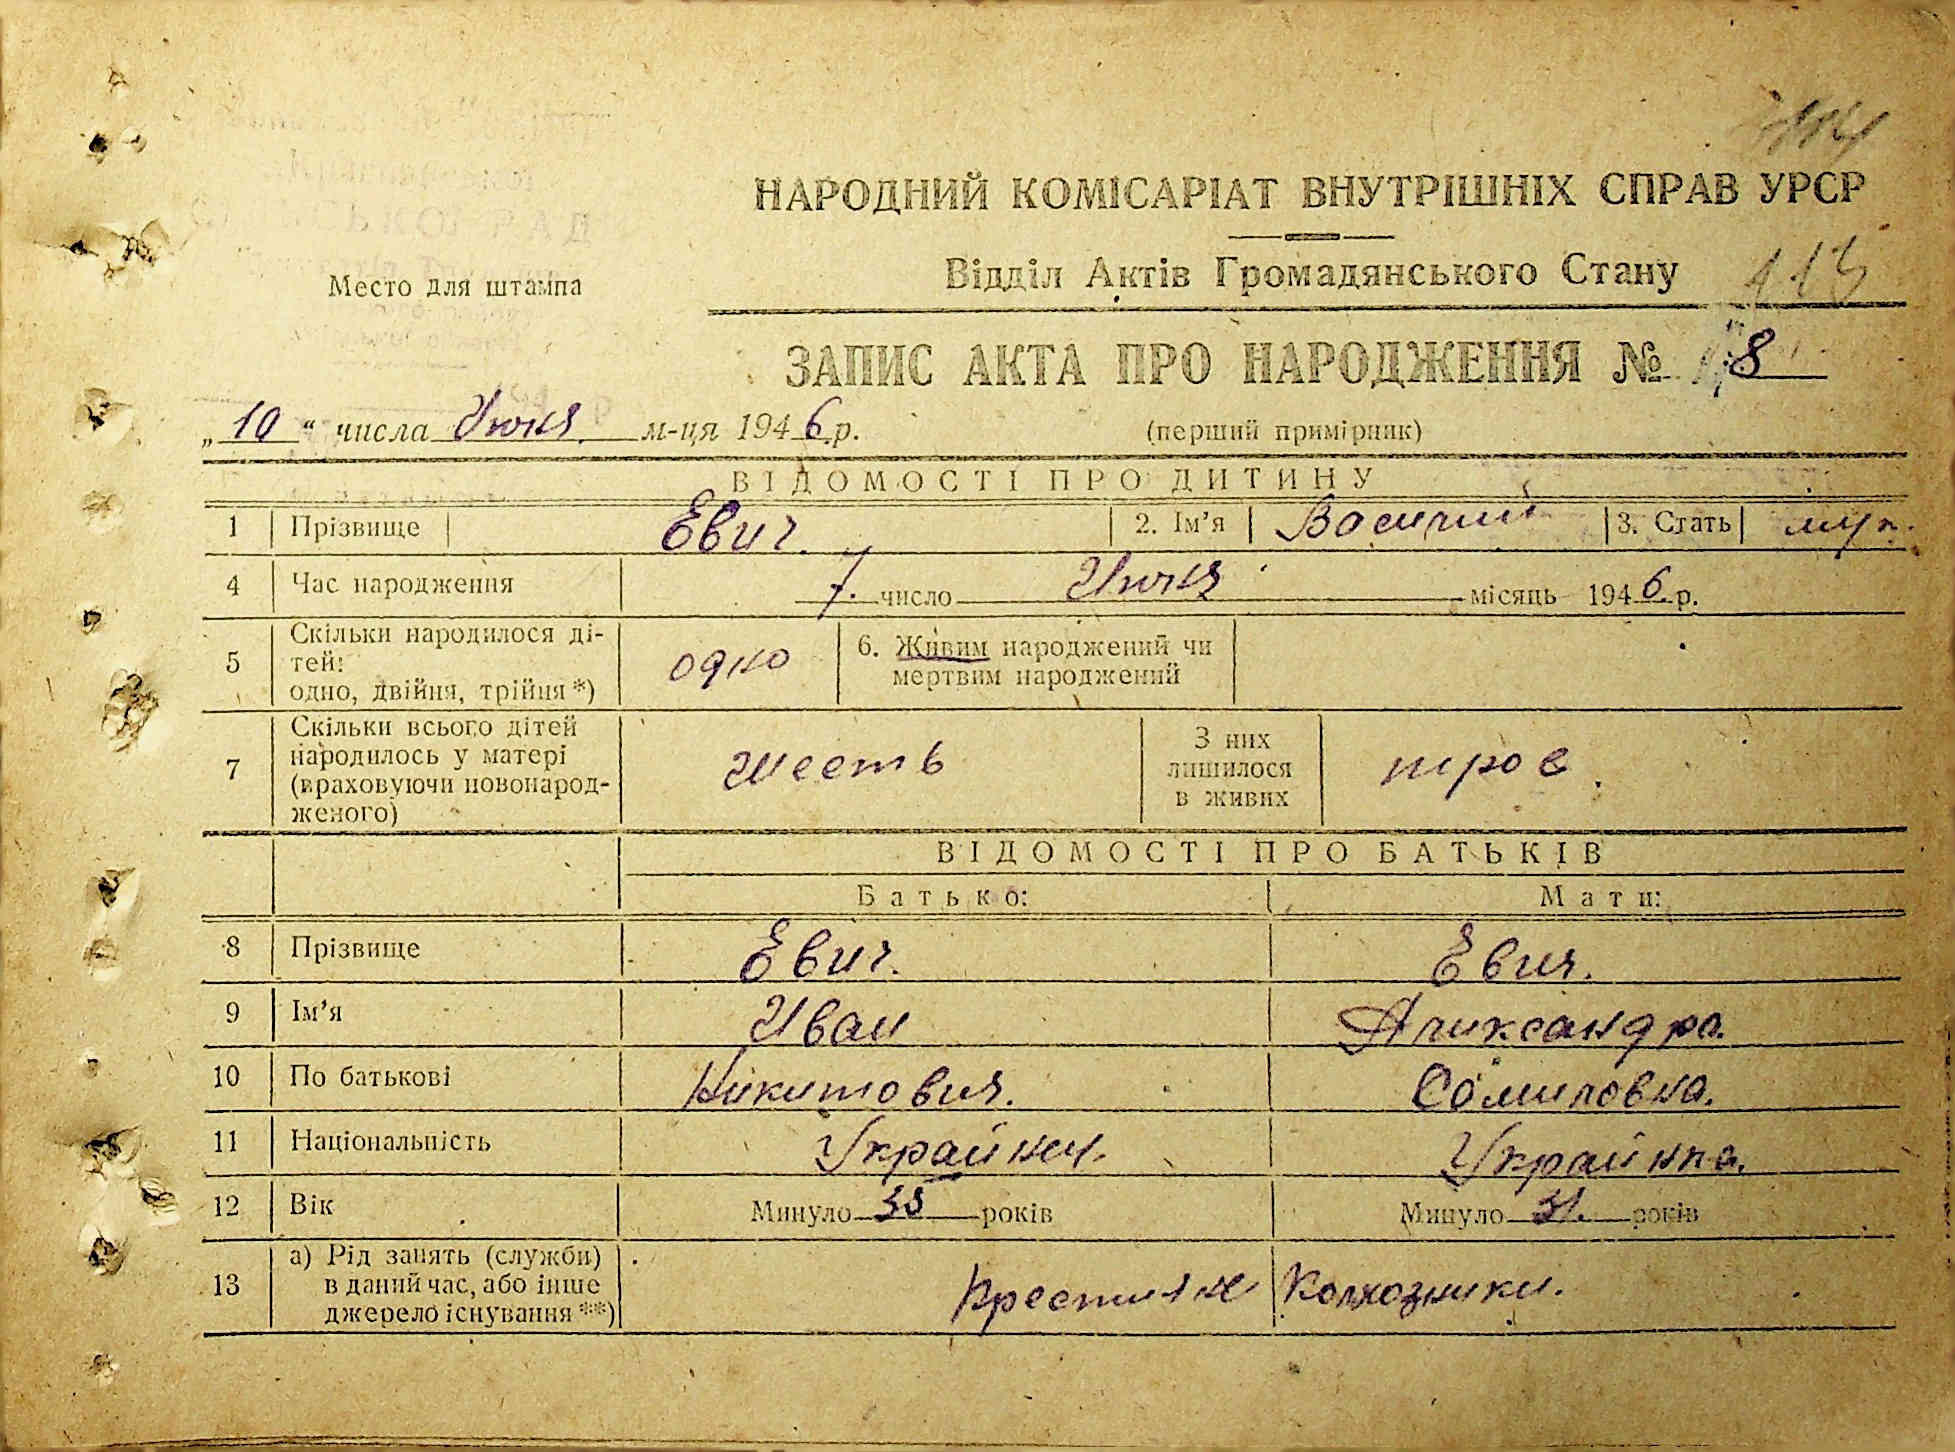 НАРОДНИЙ КОМІСАРІАТ ВНУТРІШНІХ СПРАВ УРСР
Место для штампа
Відділ Актів Громадянського Стану
113
ЗАПИС АКТА ПРО НАРОДЖЕННЯ № 8
„ 10 “ числа Июня м-ця 1946 р.
(перший примірник)
ВІДОМОСТІ ПРО ДИТИНУ
1 Прізвище Евич. 2. Ім’я Василий 3. Стать муж.
4 Час народження 7. число Июня місяць 1946 р.
5 Скільки народилося ді-
тей:
одно, двійня, трійня *)
одно
6. Живим народжений чи
мертвим народжений
7 Скільки всього дітей
народилось у матері
(враховуючи новонарод-
женого)
шесть
З них
лишилося
в живих
трое.
ВІДОМОСТІ ПРО БАТЬКІВ
Батько: Мати:
8 Прізвище Евич. Евич.
9 Ім’я Иван Аликсандра.
10 По батькові Никитович. Самиловна.
11 Національність Украйнец. Украйнка.
12 Вік Минуло 38 років Минуло 31. років
13 а) Рід занять (служби)
в даний час, або інше
джерело існування **)
Крестияне Колхозники.